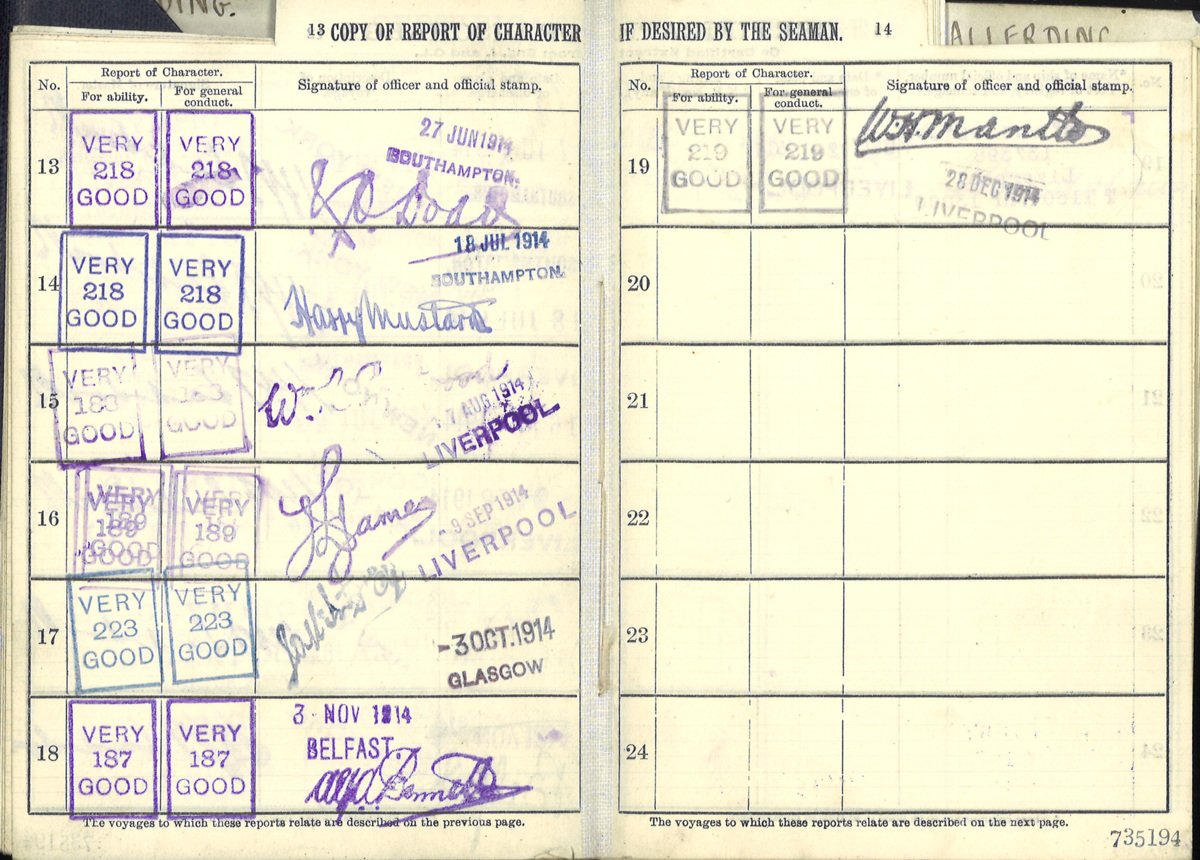 DING.
13 COPY OF REPORT OF CHARACTER
No.
Report of Character.
For ability.
For general conduct.
Signature of officer and official stamp.
13
VERY
218
GOOD
VERY
218
GOOD
27 JUN 1914
SOUTHAMPTON.
14
VERY
218
GOOD
VERY
218
GOOD
18 JUL 1914
SOUTHAMPTON.
Harry Mustard
15
VERY
GOOD
VERY
GOOD
Wm
7 AUG 1914
LIVERPOOL
16
VERY
189
GOOD
VERY
189
GOOD
James
- 9 SEP 1914
LIVERPOOL
17
VERY
223
GOOD
VERY
223
GOOD
-3 OCT. 1914
GLASGOW
18
VERY
187
GOOD
VERY
187
GOOD
3 - NOV 1914
BELFAST.
Bennett
The voyages to which these reports relate are described on the previous page.
ALLERDING
IF DESIRED BY THE SEAMAN. 14
No.
Report of Character.
For ability.
For general conduct.
Signature of officer and official stamp.
19
VERY
219
GOOD
VERY
219
GOOD
W.H. Mantle
28 DEC 1914
LIVERPOOL
20
21
22
23
24
The voyages to which these reports relate are described on the next page.
735194